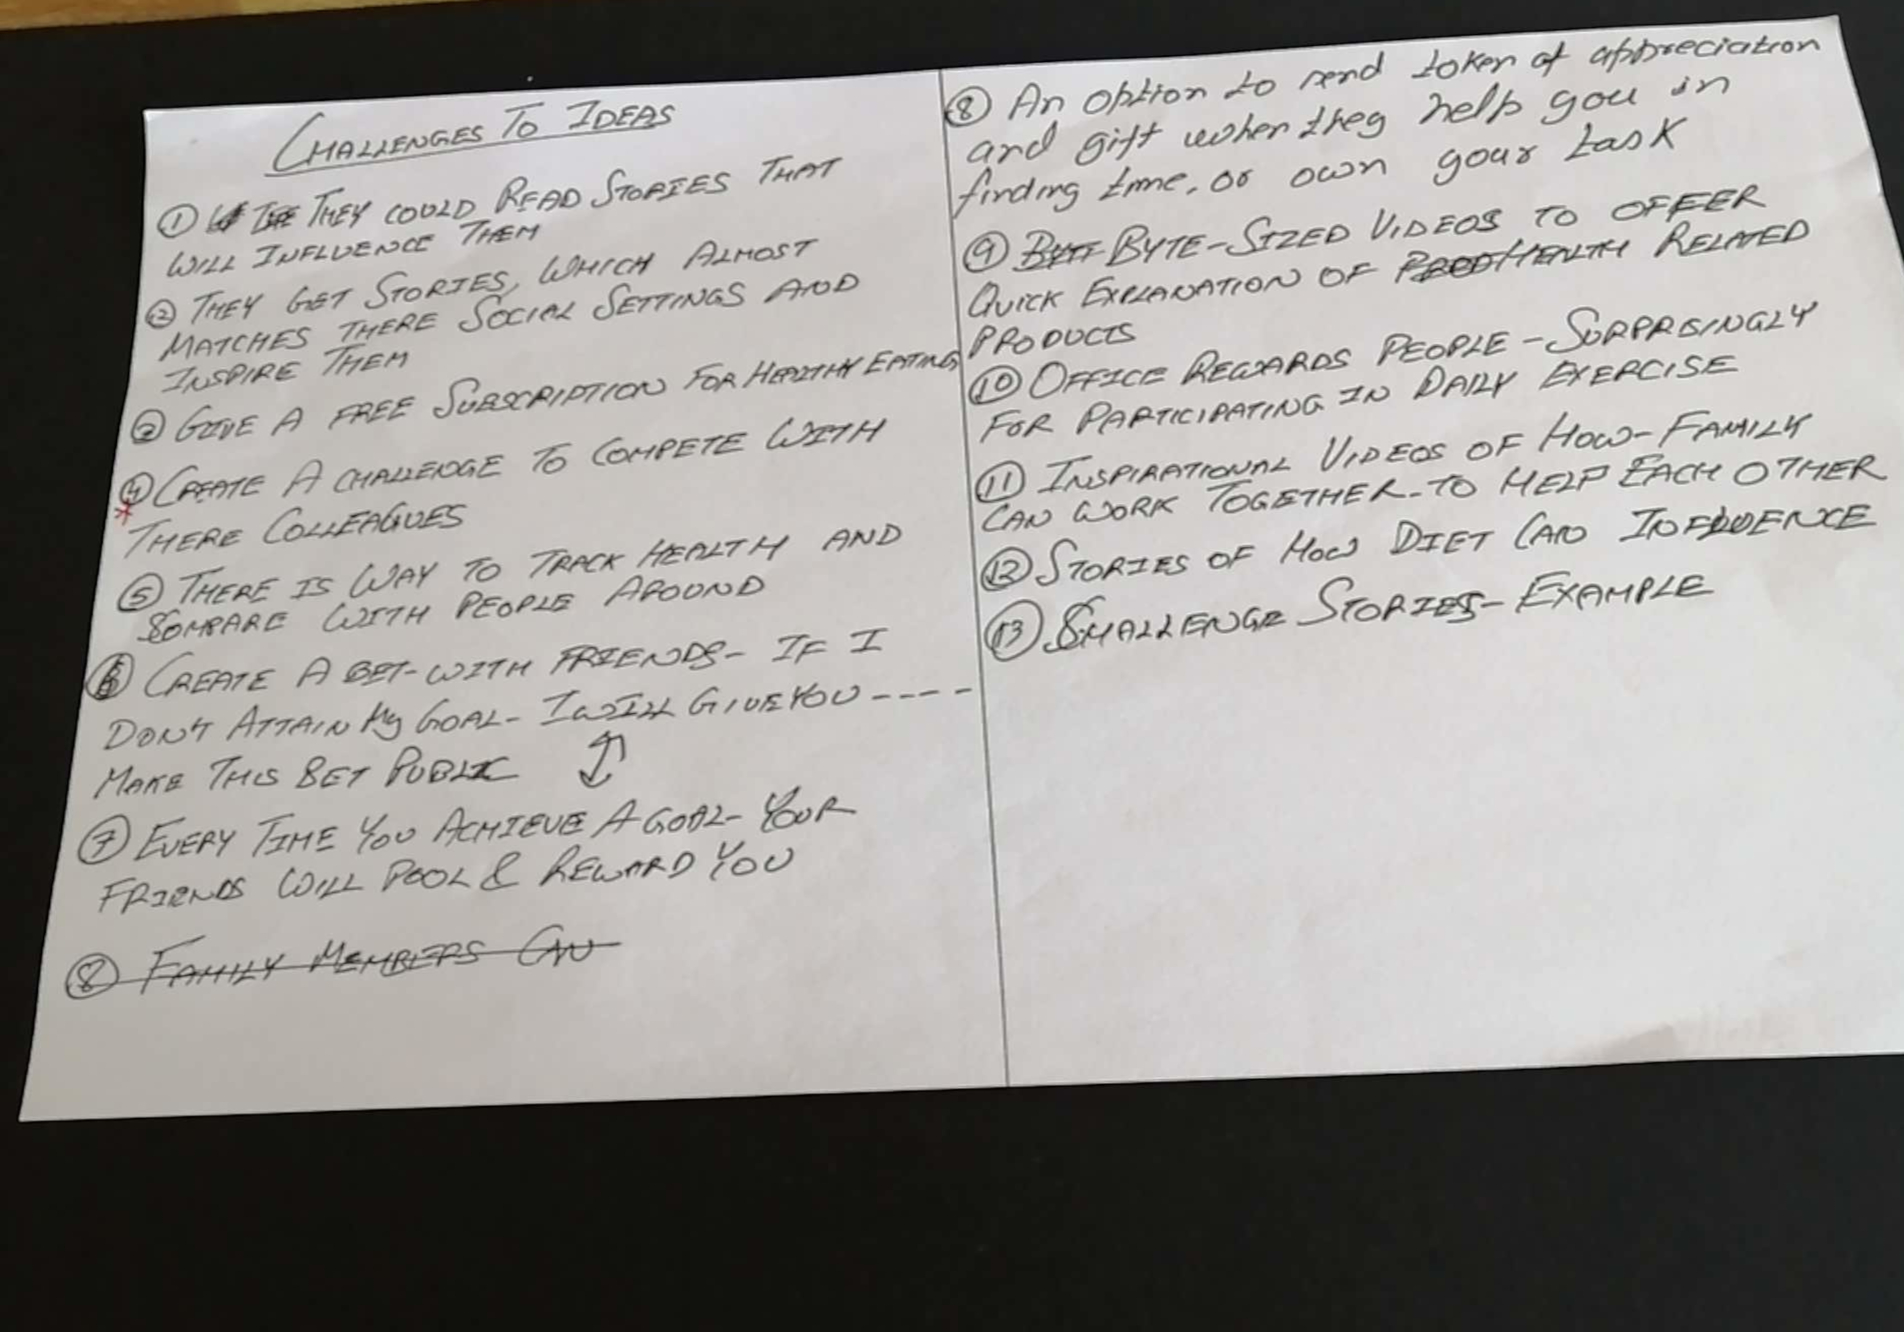 CHALLENGES TO IDEAS
① THEY COULD READ STORIES THAT
WILL INFLUENCE THEM
② THEY GET STORIES, WHICH ALMOST
MATCHES THERE SOCIAL SETTINGS AND
INSPIRE THEM
③ GIVE A FREE SUBSCRIPTION FOR HEALTHY EATING
④ CREATE A CHALLENGE TO COMPETE WITH
* THERE COLLEAGUES
⑤ THERE IS WAY TO TRACK HEALTH AND
COMPARE WITH PEOPLE AROUND
⑥ CREATE A BET-WITH FRIENDS- IF I
DON'T ATTAIN My GOAL- I WILL GIVE YOU ----
MAKE THIS BET PUBLIC
⑦ EVERY TIME YOU ACHIEVE A GOAL- YOUR
FRIENDS WILL POOL & REWARD YOU
⑧ FAMILY MEMBERS CAN
⑧ An option to send token of appreciation
and gift when they help you in
finding time, or own your task
⑨ BYTE-SIZED VIDEOS TO OFFER
QUICK EXPLANATION OF HEALTH RELATED
PRODUCTS
⑩ OFFICE REWARDS PEOPLE - SURPRISINGLY
FOR PARTICIPATING IN DAILY EXERCISE
⑪ INSPIRATIONAL VIDEOS OF HOW- FAMILY
CAN WORK TOGETHER-TO HELP EACH OTHER
⑫ STORIES OF HOW DIET CAN INFLUENCE
⑬ CHALLENGE STORIES- EXAMPLE